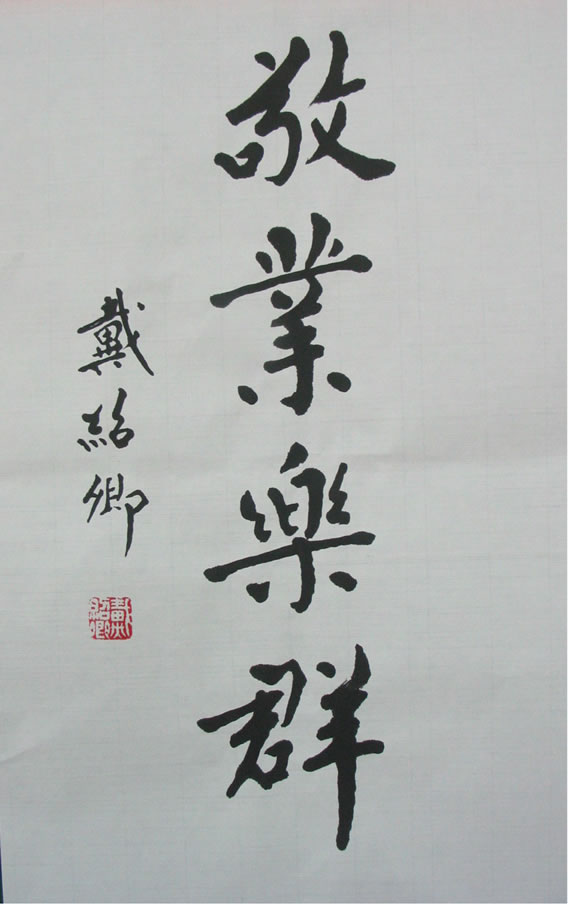 敬業樂群
戴紹卿
戴紹卿